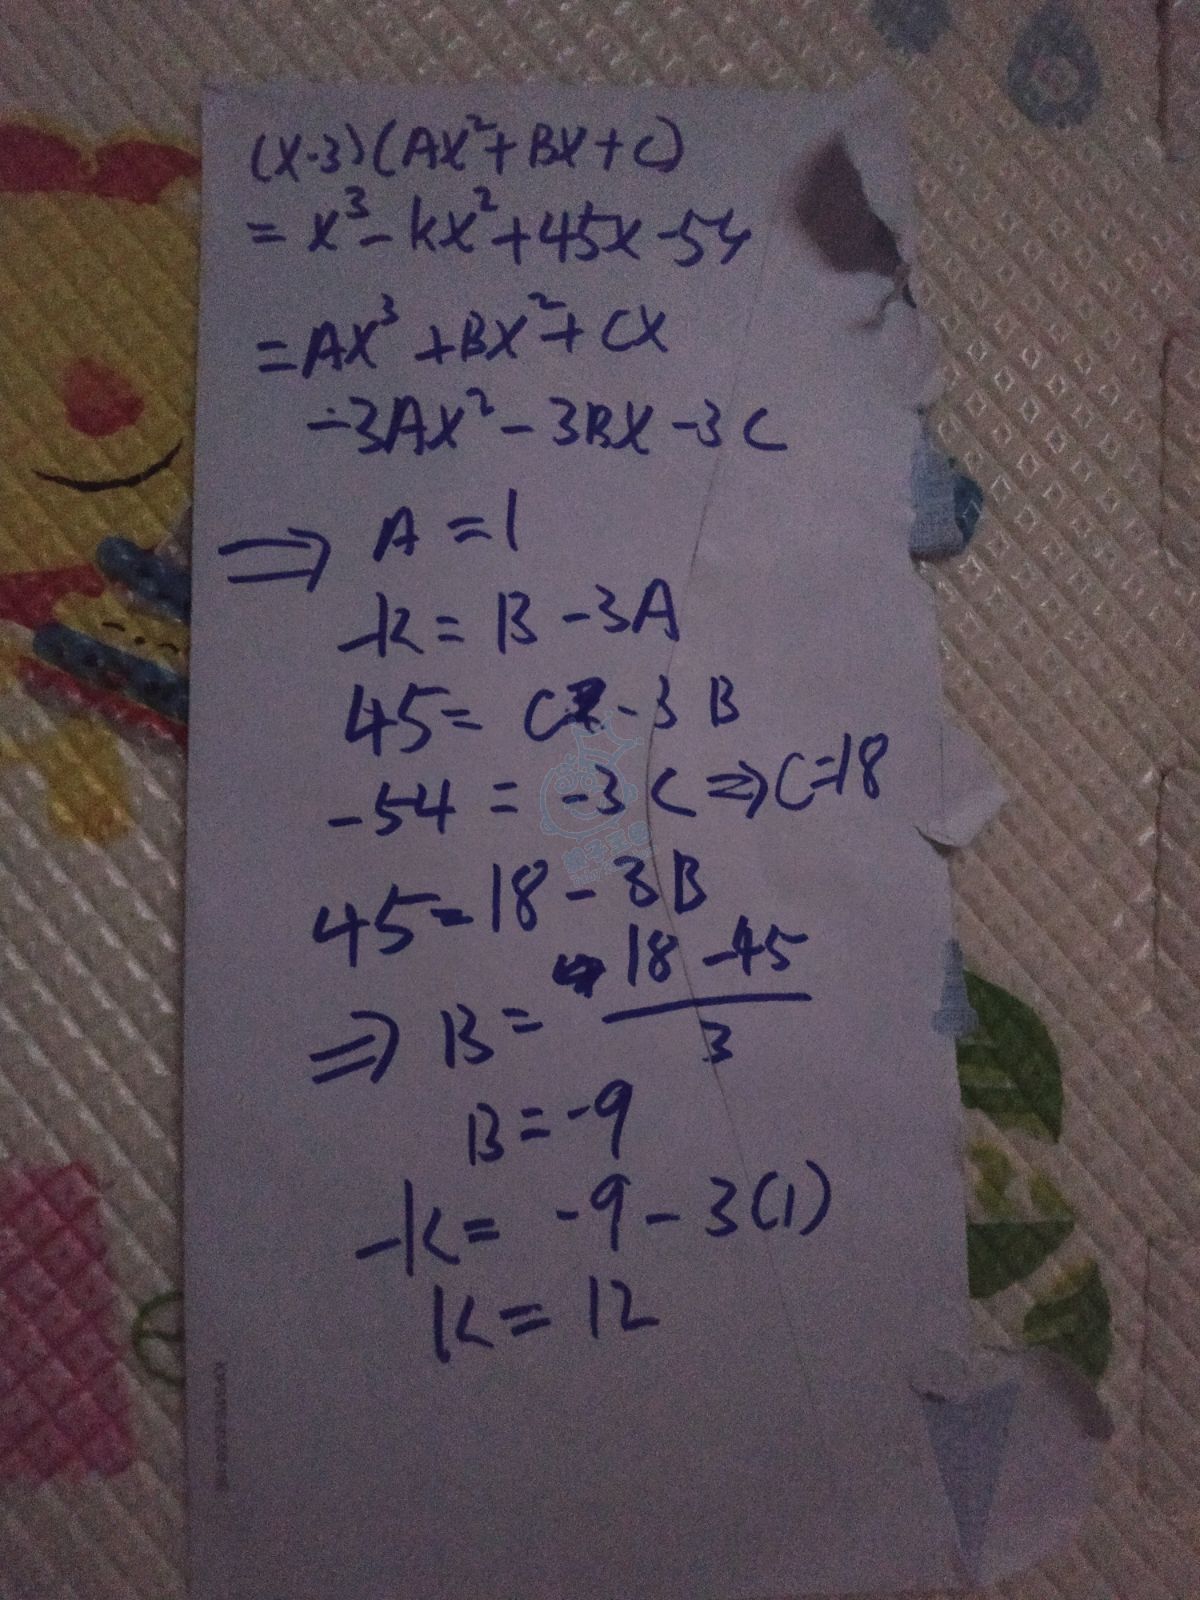 (x-3)(Ax²+Bx+C)
= x³-kx²+45x-54
=Ax³+Bx²+Cx
-3Ax²-3Bx-3C
⇒ A=1
-k=B-3A
45=C-3B
-54=-3C⇒C=18
45=18-3B
⇒ B= 18-45
3
B=-9
-k=-9-3(1)
k=12